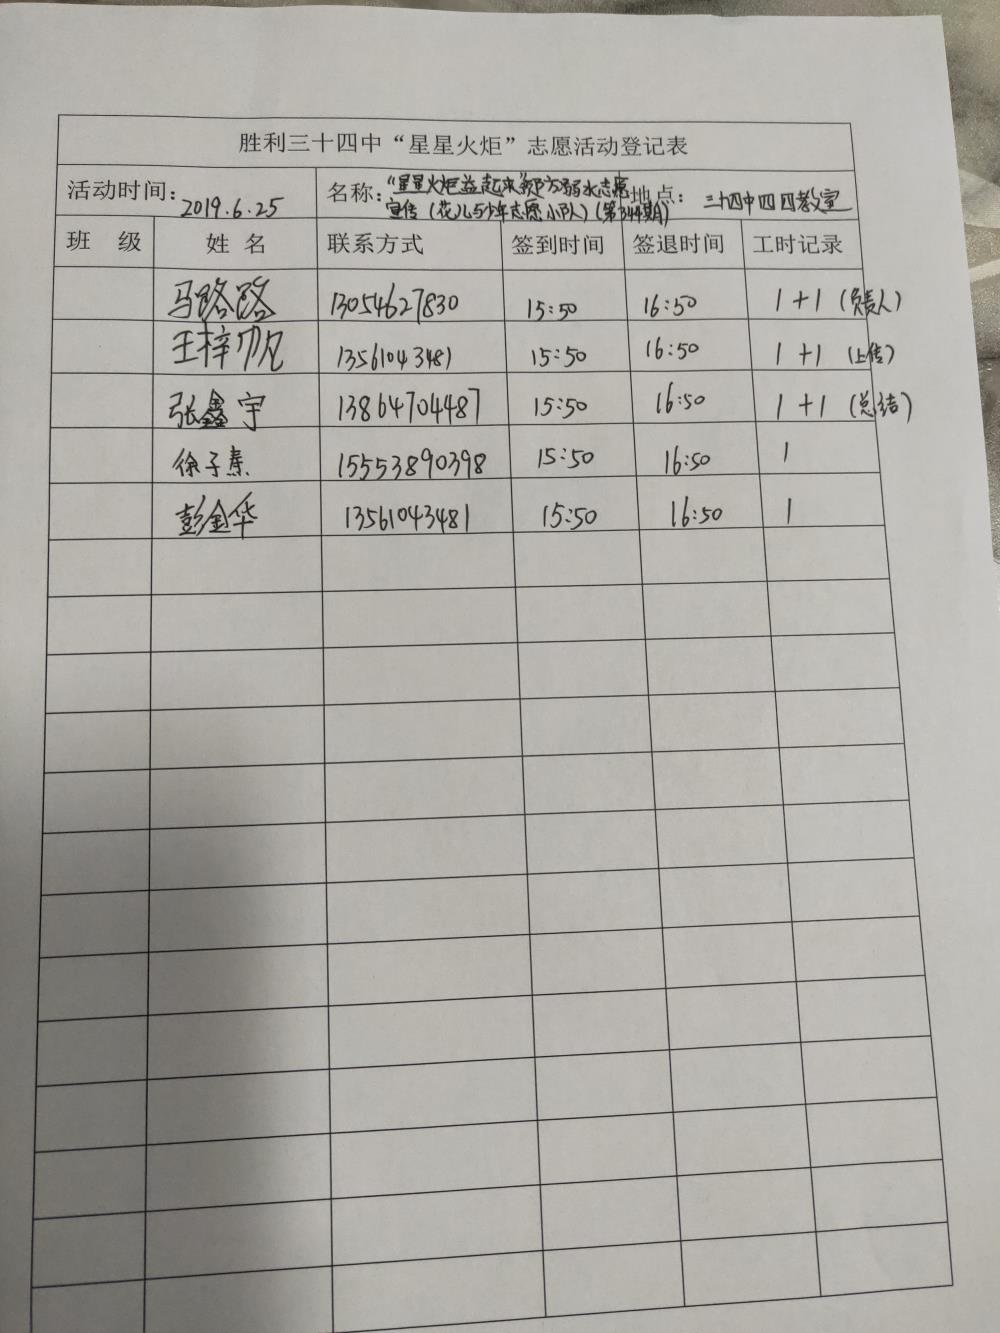 胜利三十四中“星星火炬”志愿活动登记表
活动时间：2019.6.25 名称：“星星火炬益起来”预防溺水志愿 地点：三十四中四四教室
宣传（花儿与少年志愿小队）（第344期）
班 级 姓 名 联系方式 签到时间 签退时间 工时记录
马路路 13054627830 15:50 16:50 1+1（负责人）
王梓帆 13561043481 15:50 16:50 1+1（上传）
张鑫宇 13864704487 15:50 16:50 1+1（总结）
徐子 15553890398 15:50 16:50 1
彭金华 13561043481 15:50 16:50 1